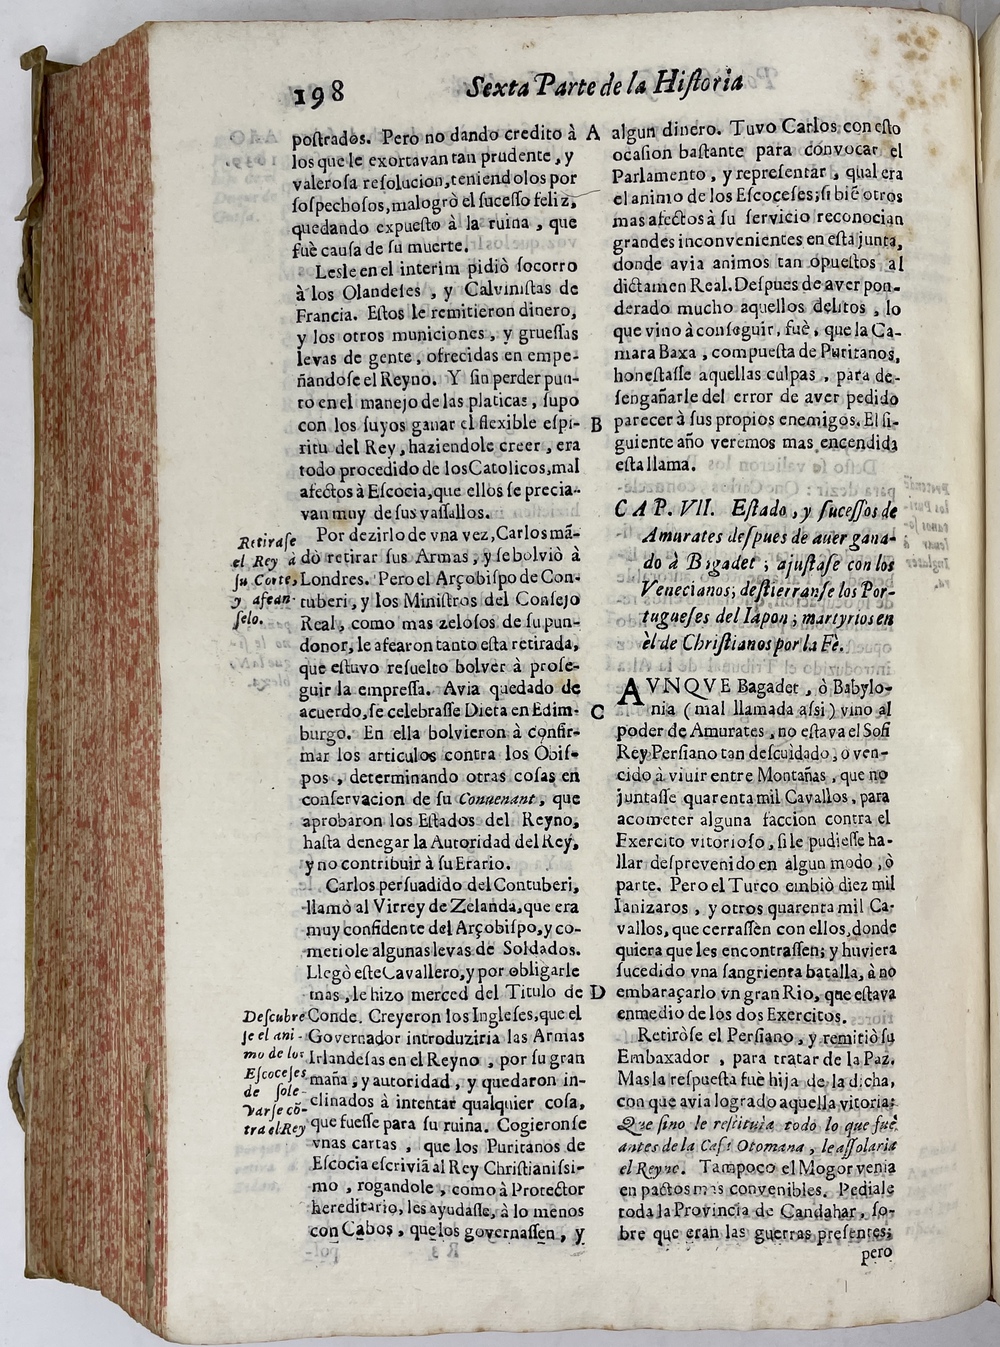 198
Sexta Parte de la Historia
postrados. Pero no dando credito à
los que le exortavan tan prudente, y
valerosa resolucion, teniendolos por
sospechosos, malogrò el sucesso feliz,
quedando expuesto à la ruina, que
fuè causa de su muerte.
Lesle en el interim pidiò socorro
à los Olandeses, y Calvinistas de
Francia. Estos le remitieron dinero,
y los otros municiones, y gruessas
levas de gente, ofrecidas en empe-
ñandose el Reyno. Y sin perder pun-
to en el manejo de las platicas, supo
con los suyos ganar el flexible espi-
ritu del Rey, haziendole creer, era
todo procedido de los Catolicos, mal
afectos à Escocia, que ellos se precia-
van muy de sus vassallos.
Por dezirlo de vna vez, Carlos mã-
dò retirar sus Armas, y se bolviò à
Londres. Pero el Arçobispo de Con-
tuberi, y los Ministros del Consejo
Real, como mas zelosos de su pun-
donor, le afearon tanto esta retirada,
que estuvo resuelto bolver à prose-
guir la empressa. Avia quedado de
acuerdo, se celebrasse Dieta en Edim-
burgo. En ella bolvieron à confir-
mar los articulos contra los Obis-
pos, determinando otras cosas en
conservacion de su Conuenant, que
aprobaron los Estados del Reyno,
hasta denegar la Autoridad del Rey,
y no contribuir à su Erario.
Carlos persuadido del Contuberi,
llamò al Virrey de Zelanda, que era
muy confidente del Arçobispo, y co-
metiole algunas levas de Soldados.
Llegò este Cavallero, y por obligarle
mas, le hizo merced del Titulo de
Conde. Creyeron los Ingleses, que el
Governador introduziria las Armas
Irlandesas en el Reyno, por su gran
maña, y autoridad, y quedaron in-
clinados à intentar qualquier cosa,
que fuesse para su ruina. Cogieronse
vnas cartas, que los Puritanos de
Escocia escriviã al Rey Christianissi-
mo, rogandole, como à Protector
hereditario, les ayudasse, à lo menos
con Cabos, que los governassen, y
Retirase
el Rey à
su Corte,
y afean-
selo.
Descubre
se el ani-
mo de los
Escoceses
de sole-
varse cõ-
tra el Rey
A
B
C
D
algun dinero. Tuvo Carlos con esto
ocasion bastante para convocar el
Parlamento, y representar, qual era
el animo de los Escoceses; si biẽ otros
mas afectos à su servicio reconocian
grandes inconvenientes en esta junta,
donde avia animos tan opuestos al
dictamen Real. Despues de aver pon-
derado mucho aquellos delitos, lo
que vino à conseguir, fuè, que la Ca-
mara Baxa, compuesta de Puritanos,
honestasse aquellas culpas, para de-
sengañarle del error de aver pedido
parecer à sus propios enemigos. El si-
guiente año veremos mas encendida
esta llama.
CAP. VII. Estado, y sucessos de
Amurates despues de auer gana-
do à Bagadet; ajustase con los
Venecianos; destierranse los Por-
tugueses del Iapon; martyrios en
èl de Christianos por la Fè.
AVNQVE Bagadet, ò Babylo-
nia (mal llamada assi) vino al
poder de Amurates, no estava el Sofi
Rey Persiano tan descuidado, ò ven-
cido à viuir entre Montañas, que no
juntasse quarenta mil Cavallos, para
acometer alguna faccion contra el
Exercito vitorioso, si le pudiesse ha-
llar desprevenido en algun modo, ò
parte. Pero el Turco embiò diez mil
Ianizaros, y otros quarenta mil Ca-
vallos, que cerrassen con ellos, donde
quiera que les encontrassen; y huviera
sucedido vna sangrienta batalla, à no
embaraçarlo vn gran Rio, que estava
enmedio de los dos Exercitos.
Retiròse el Persiano, y remitiò su
Embaxador, para tratar de la Paz.
Mas la respuesta fuè hija de la dicha,
con que avia logrado aquella vitoria:
Que sino le restituìa todo lo que fuè
antes de la Casa Otomana, le assolaria
el Reyno. Tampoco el Mogor venia
en pactos mas convenibles. Pediale
toda la Provincia de Candahar, so-
bre que eran las guerras presentes;
pero